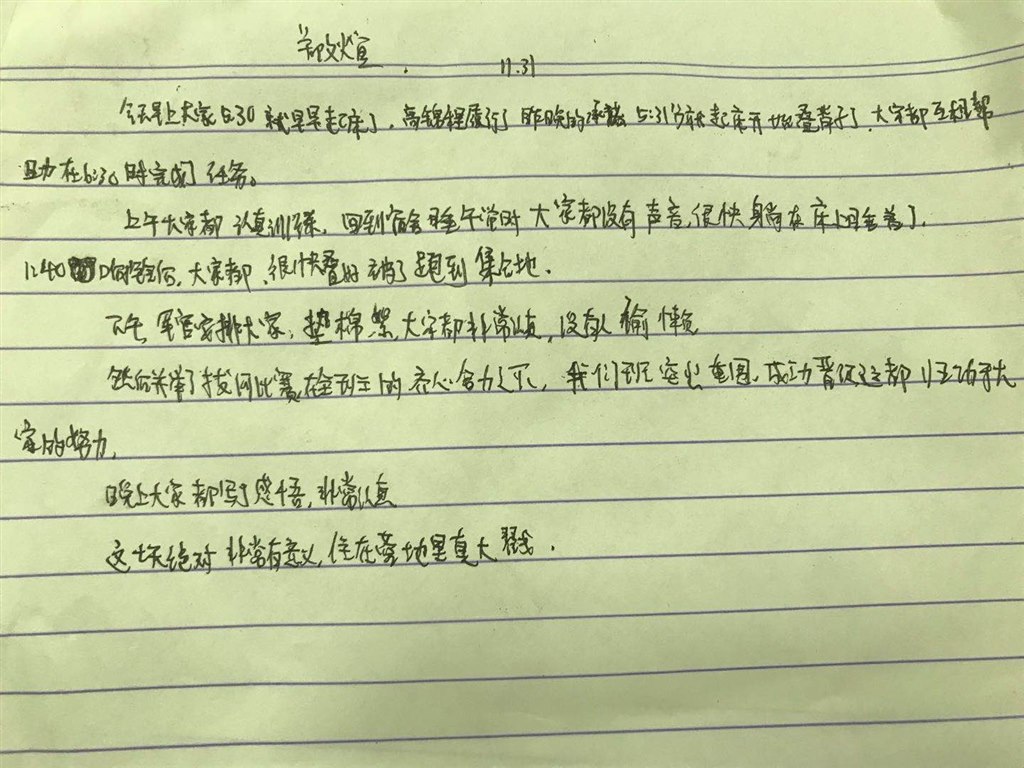 郑文煊 11.31
今天早上大家6:30就早早起床了,高锦锂履行了昨晚的承诺5:31分就起床开始叠背子了,大家都互相帮
助在6:30时完成了任务。
上午大家都认真训练,回到宿舍睡午觉时大家都没有声音,很快身躺在床上睡着了,
1:40 大家都很快叠好被子跑到集合地.
下午军官安排大家,垫棉絮,大家都非常认真,没有人偷懒
然后关带了拔河比赛在全班的齐心合力之下,我们班突出重围,成功晋级这都归功于大
家的努力.
晚上大家都写了感悟,非常认真
这一天绝对非常有意义,住在营地里真大